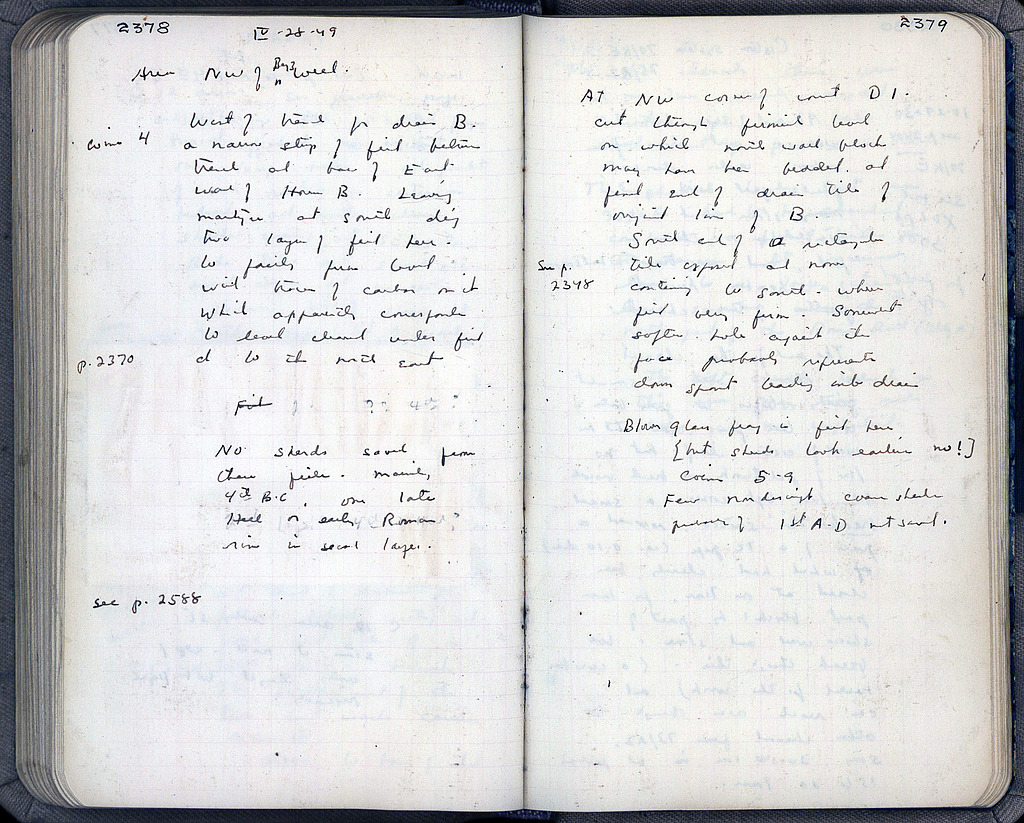 2378
IV-28-49
Area NW of Byz well.
West of trench for drain B.
coins 4 a narrow strip of fill between
trench at base of East
wall of House B. Leaving
martyr at south dig
two layers of fill here.
to fairly firm level
with traces of carbon on it
which apparently corresponds
to level cleared under fill
p. 2370
to the north east
Fill ?? 4th ?
No sherds saved from
these fills. mainly
4th B.C., one late
Hell or early Roman?
rim in second layer.
see p. 2588
2379
At NW corner of court D1.
cut through firmish level
on which north wall blocks
may have been bedded. at
find end of drain tile of
original line of B
South end of a rectangular
See p. 2348
tile exposed at room
continuing to south. where
fill very firm. Somewhat
softer hole against the
face probably represents
down spout leading into drain
Blown glass frag in fill here
[but sherds look earlier no!]
Coins 5-9
Few nondescript coarse sherds
1st A.D. not saved.